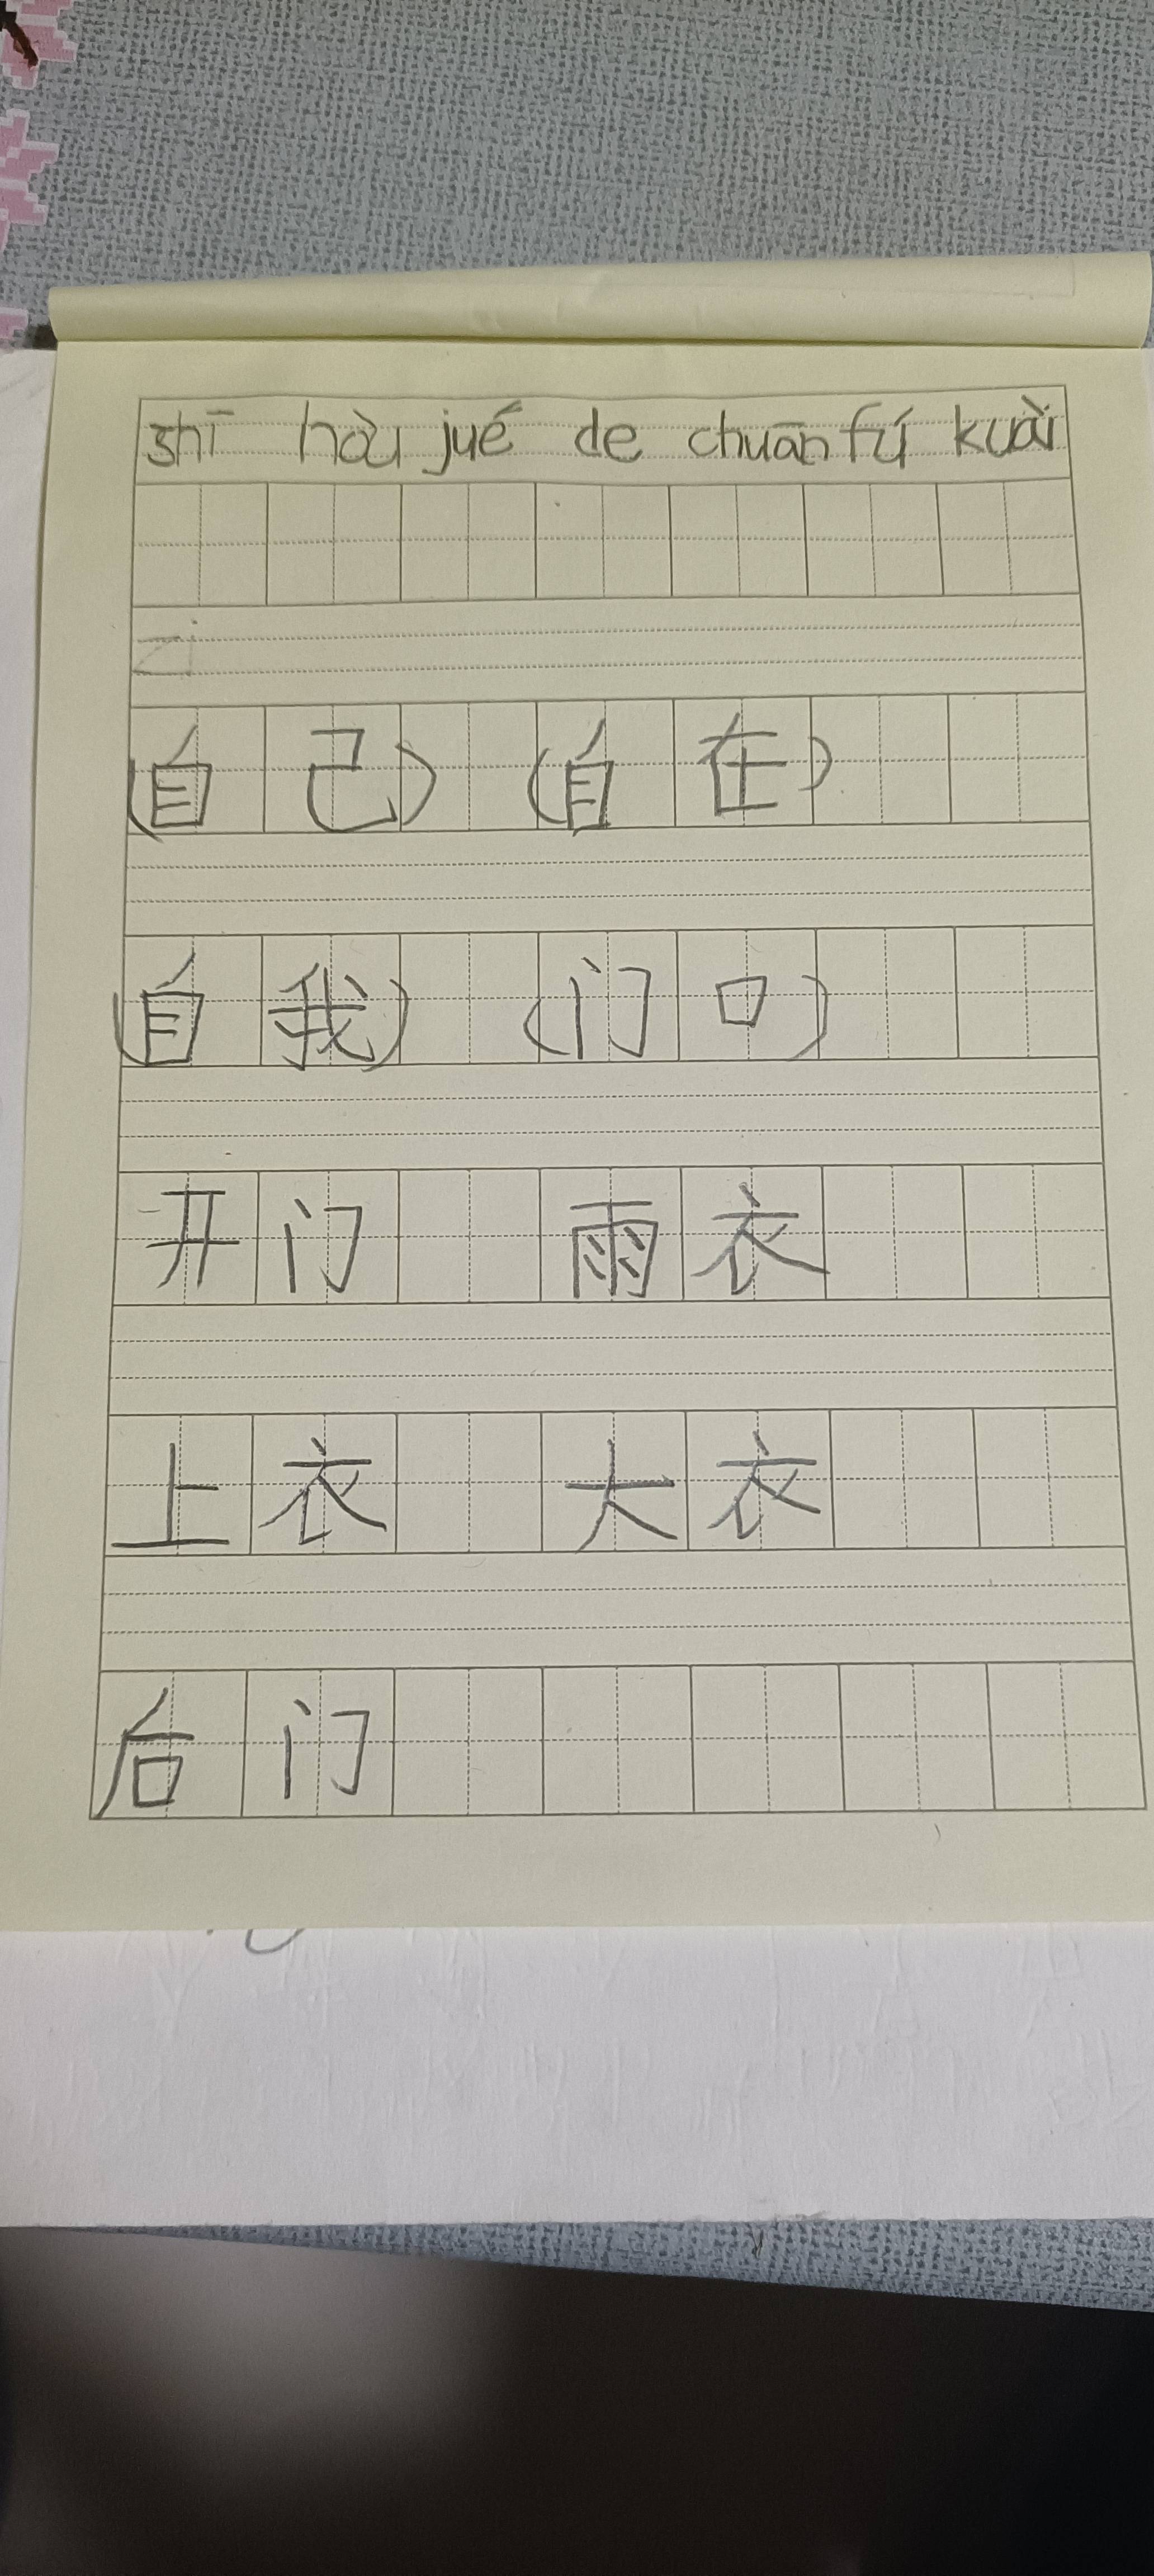 shī hòu jué de chuān fú kuài
(自己) (自在)
(自我) (门口)
开门 雨衣
上衣 大衣
后门